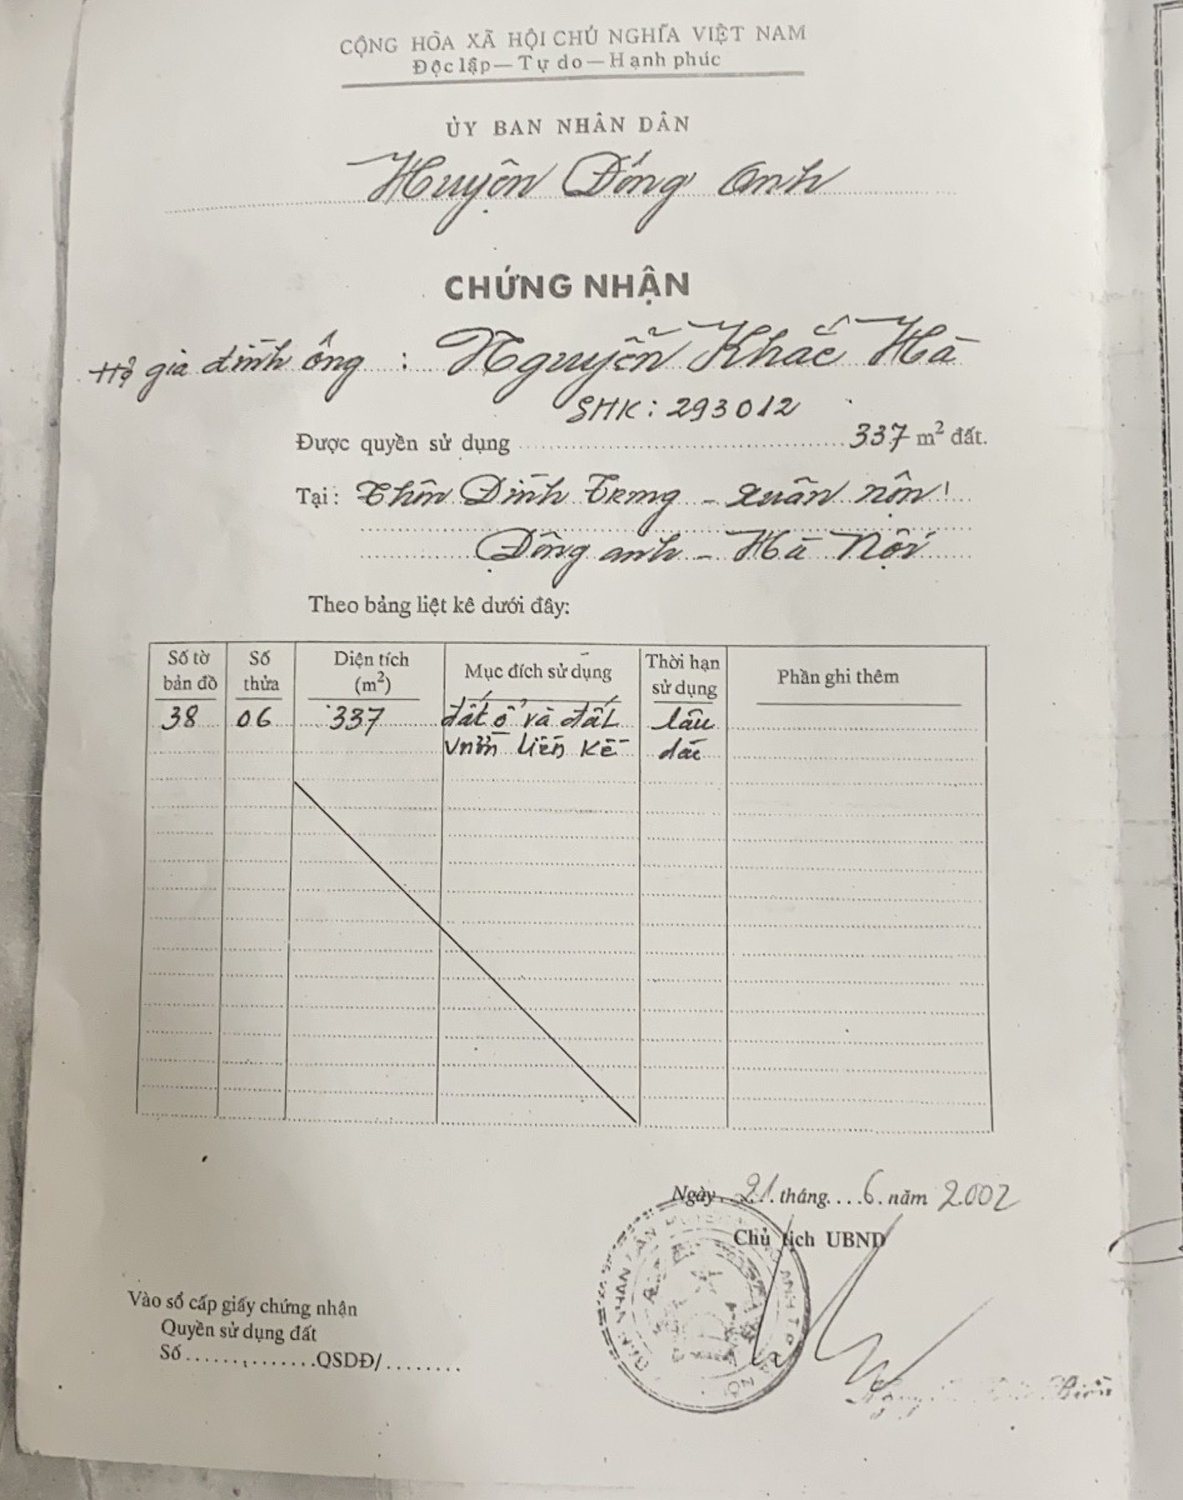 CỘNG HÒA XÃ HỘI CHỦ NGHĨA VIỆT NAM
Độc lập — Tự do — Hạnh phúc
ỦY BAN NHÂN DÂN
Huyện Đông Anh
CHỨNG NHẬN
Hộ gia đình ông : Nguyễn Khắc Hà
SHK : 293012
Được quyền sử dụng 337 m² đất.
Tại : Thôn Đình Trung - Xuân Nộn
Đông anh - Hà Nội
Theo bảng liệt kê dưới đây:
Số tờ bản đồ Số thửa Diện tích (m²) Mục đích sử dụng Thời hạn sử dụng Phần ghi thêm
38 06 337 đất ở và đất lâu
vườn liền kề dài
Ngày 21 tháng 6 năm 2002
Chủ tịch UBND
Vào sổ cấp giấy chứng nhận
Quyền sử dụng đất
Số .............. QSDĐ/ ........